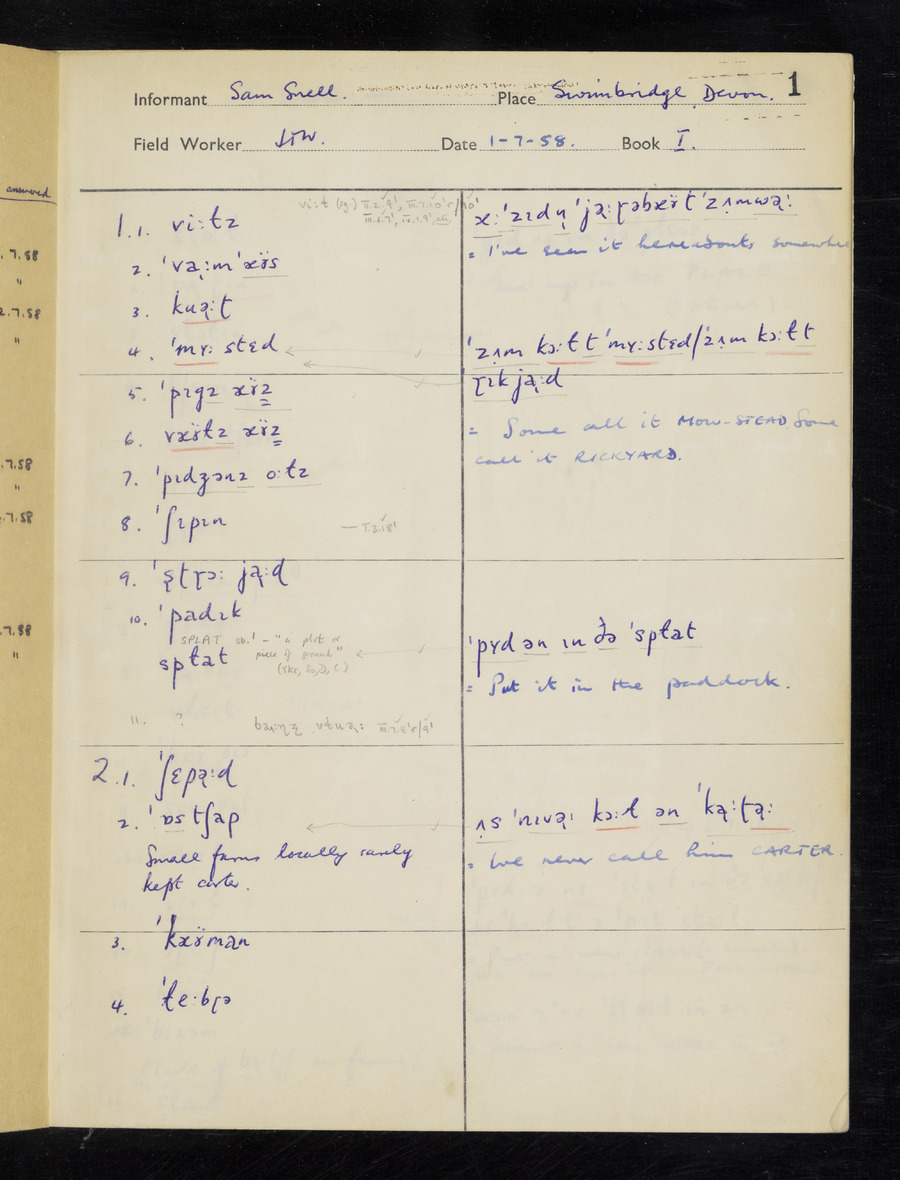 1
Informant Sam Snell. Place Swimbridge, Devon.
Field Worker Date 1-7-58. Book I.
answered
7.58
"
2.7.58
"
7.58
"
7.58
7.58
"
1.1. vi:tz
2. 'va̢:m 'æÿs
3. kua̢:ɫ
4. 'mʏ: stɛd
5. 'pɪgz æÿz
6. væÿɫz æÿz
7. 'pɪdʒənz o:ɫz
8. 'ʃɪpɪn
— I.3.18'
9. 'ʂtɽɔ: ja̢:d
10. 'padɪk
SPLAT sb.¹ – "a plot or
piece of ground"
spɫat
11. ?
2.1. 'ʃɛpa̢:d
2. 'ɒstʃap
Small farms locally rarely
kept carter.
3. 'kæÿman
4. 'ɫe:bɽə
= I've seen it hereabouts somewhere
'zʌm kɔ:ɫ t 'mʏ:stɛd/'zʌm kɔ:ɫ t
ɽɪk ja̢:d
= Some call it MOW-STEAD, some
call it RICKYARD.
'pʏd ən ɪn ðə 'spɫat
= Put it in the paddock.
ʌs 'nɪvə̢: kɔ:ɫ ən 'ka̢:ʈə̢:
= We never call him CARTER.